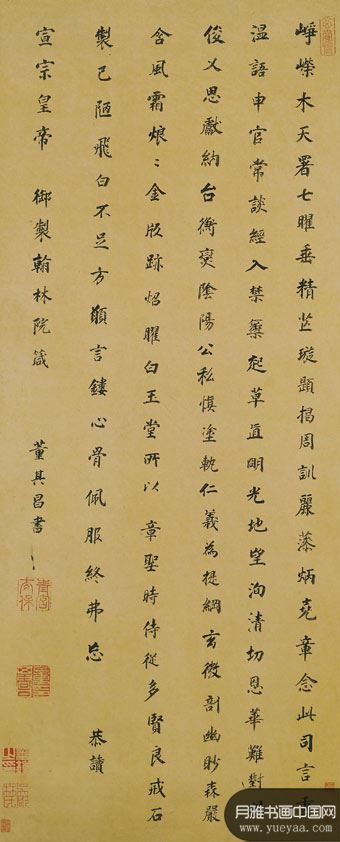 峥嵘木天署七曜垂精芒璇題揭周訓麗藻炳堯章念此司言重
温語申官常談經入禁籞起草直明光地望洵清切恩華難對
俊乂思獻納台衡爕陰陽公私慎塗軌仁義為提綱玄微剖幽眇森嚴
含風霜烺〻金版跡炤曜白玉堂所以章聖時侍從多賢良戒石
製已陋飛白不足方願言鏤心骨佩服終弗忘 恭讀
宣宗皇帝 御製翰林院箴
董其昌書
月雅书画中国网
www.yueyaa.com